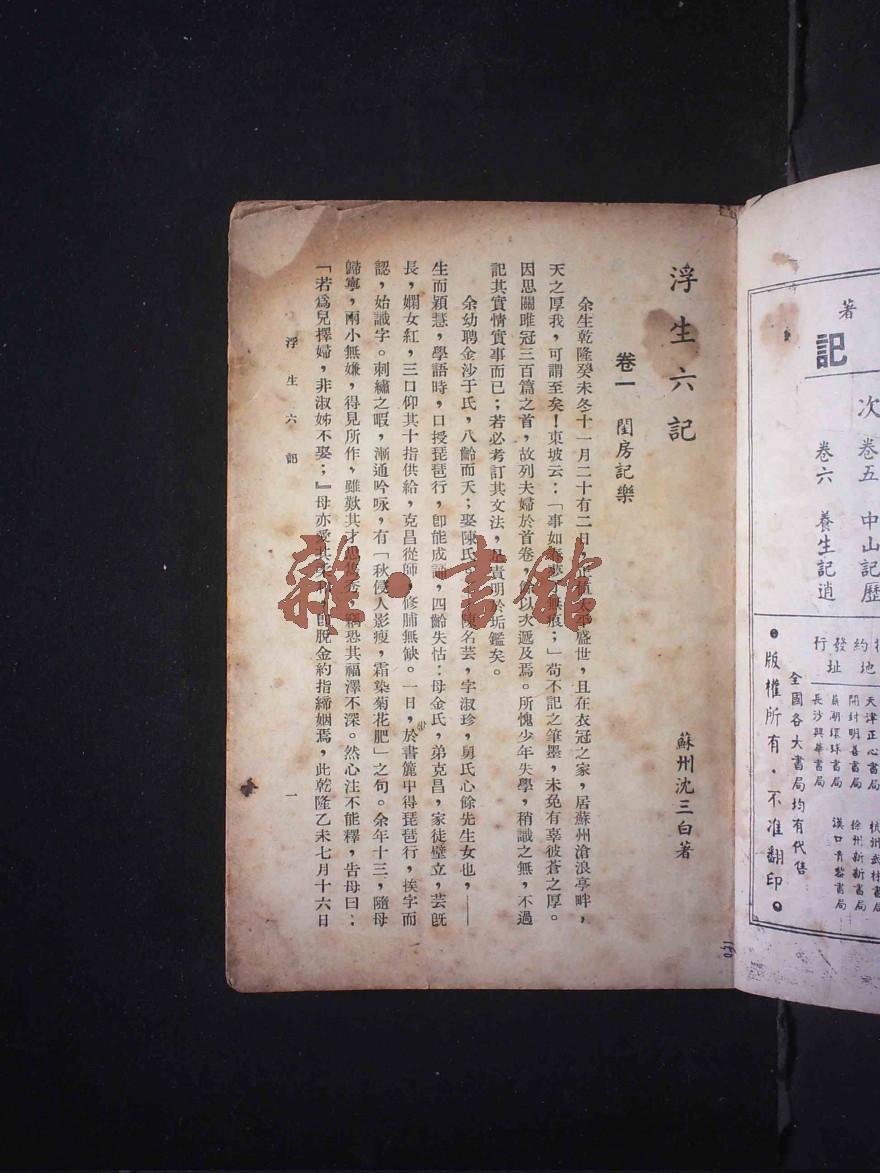 著
記
次
卷五　中山記歷
卷六　養生記逍
約
地
發
址
行
天津正心書局
杭州武林書局
開封明善書局
徐州新新書局
蕪湖環球書局
漢口青黎書局
長沙興華書局
全國各大書局均有代售
版權所有・不准翻印
浮生六記
蘇州沈三白著
卷一　閨房記樂
余生乾隆癸未冬十一月二十有二日，值太平盛世，且在衣冠之家，居蘇州滄浪亭畔，
天之厚我，可謂至矣！東坡云：「事如春夢了無痕；」苟不記之筆墨，未免有辜彼蒼之厚。
因思關雎冠三百篇之首，故列夫婦於首卷，餘以次遞及焉。所愧少年失學，稍識之無，不過
記其實情實事而已；若必考訂其文法，是責明於垢鑑矣。
余幼聘金沙于氏，八齡而夭；娶陳氏。陳名芸，字淑珍，舅氏心餘先生女也，——
生而穎慧，學語時，口授琵琶行，卽能成誦，四齡失怙：母金氏，弟克昌，家徒壁立，芸旣
長，嫻女紅，三口仰其十指供給，克昌從師，修脯無缺。一日，於書簏中得琵琶行，挨字而
認，始識字。刺繡之暇，漸通吟咏，有「秋侵人影瘦，霜染菊花肥」之句。余年十三，隨母
歸寧，兩小無嫌，得見所作，雖歎其才思雋秀，竊恐其福澤不深。然心注不能釋，告母曰：
「若爲兒擇婦，非淑姊不娶；』母亦愛其柔和，卽脫金約指締姻焉，此乾隆乙未七月十六日
浮生六記
一
雜・書館